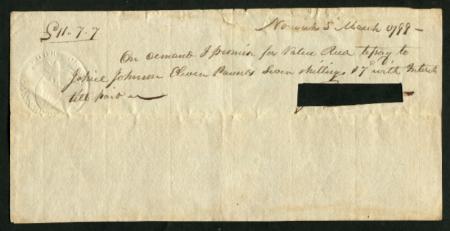 £11.7.7
Norwich 5 March 1788 —
On demand I promise for Value Recd to pay to
Johnson Eleven Pounds Seven shillings & 7d with Interest
till paid